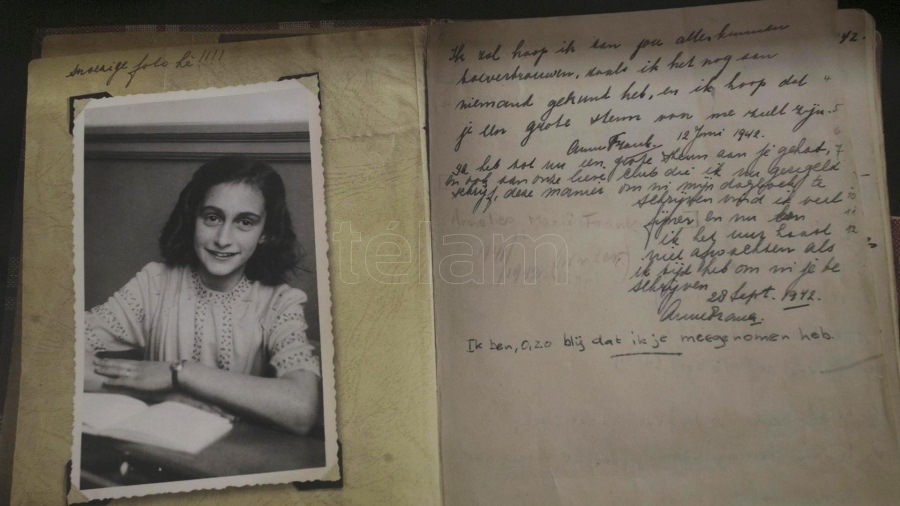 snoezige foto hè!!!!
Ik zal hoop ik aan jou alles kunnen
toevertrouwen, zoals ik het nog aan
niemand gekund heb, en ik hoop dat
je een grote steun voor me zult zijn.
Anne Frank. 12 Juni 1942.
Ik heb tot nu een grote steun aan je gehad,
en ook aan onze lieve club die ik nu geregeld
schrijf, deze manier om in mijn dagboek te
schrijven vind ik veel
fijner en nu kan
ik het uur haast
niet afwachten als
ik tijd heb om in je te
schrijven
28 Sept. 1942.
Anne Frank.
Ik ben, O, zo blij dat ik je meegenomen heb.
telam